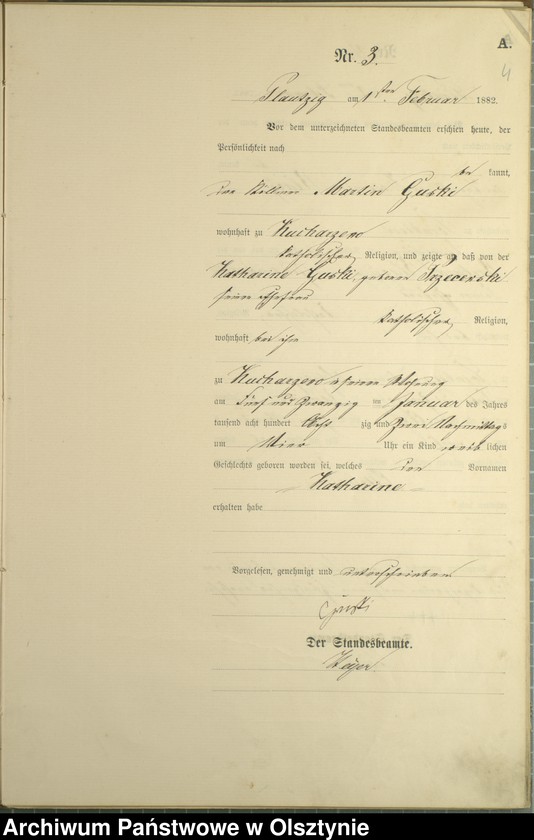 A.
4
Nr. 3.
Plautzig am 1ten Februar 1882.
Vor dem unterzeichneten Standesbeamten erschien heute, der
Persönlichkeit nach
be kannt,
der Martin Guski
wohnhaft zu Kucharzewo
katholischer Religion, und zeigte an, daß von der
Katharine Guski, geboren
seiner Ehefrau
katholischer Religion,
wohnhaft bei ihm
zu Kucharzewo in seiner Wohnung
am Fünf und Zwanzig ten Januar des Jahres
tausend acht hundert Acht zig und Zwei Nachmittags
um Vier Uhr ein Kind weib lichen
Geschlechts geboren worden sei, welches den Vornamen
Katharine
erhalten habe
Vorgelesen, genehmigt und unterschrieben
Guski
Der Standesbeamte.
Archiwum Państwowe w Olsztynie